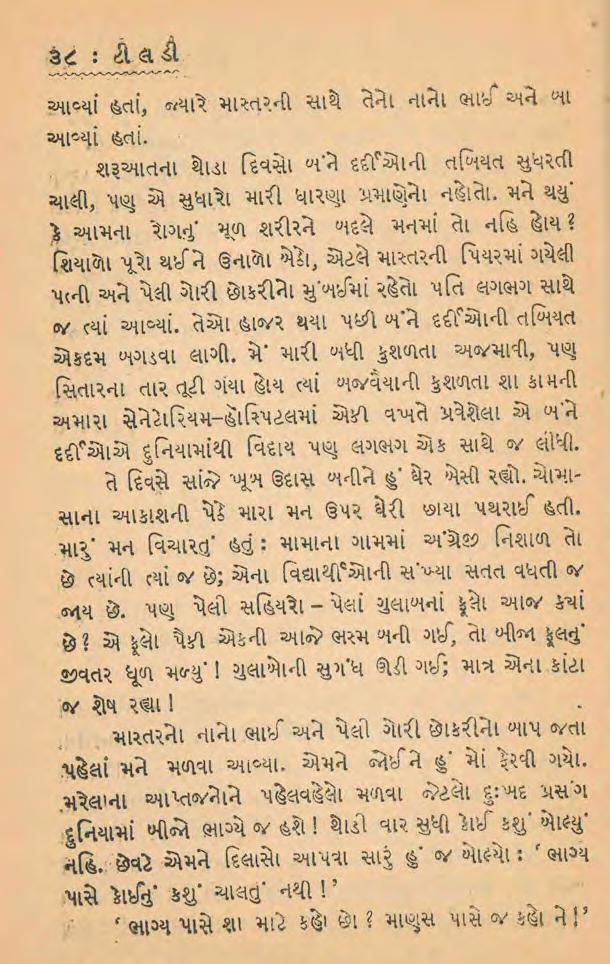 ૩૮ : ટીલડી
આવ્યાં હતાં, જ્યારે માસ્તરની સાથે તેનો નાનો ભાઈ અને બા
આવ્યાં હતાં.
શરૂઆતના થોડા દિવસો બંને દર્દીઓની તબિયત સુધરતી
ચાલી, પણ એ સુધારો મારી ધારણા પ્રમાણેનો નહોતો. મને થયું
કે આમના રોગનું મૂળ શરીરને બદલે મનમાં તો નહિ હોય?
શિયાળો પૂરો થઈને ઉનાળો બેઠો, એટલે માસ્તરની પિયરમાં ગયેલી
પત્ની અને પેલી ગોરી છોકરીનો મુંબઈમાં રહેતો પતિ લગભગ સાથે
જ ત્યાં આવ્યાં. તેઓ હાજર થયા પછી બંને દર્દીઓની તબિયત
એકદમ બગડવા લાગી. મેં મારી બધી કુશળતા અજમાવી, પણ
સિતારના તાર તૂટી ગયા હોય ત્યાં બજવૈયાની કુશળતા શા કામની
અમારા સેનેટોરિયમ–હૉસ્પિટલમાં એકી વખતે પ્રવેશેલા એ બંને
દર્દીઓએ દુનિયામાંથી વિદાય પણ લગભગ એક સાથે જ લીધી.
તે દિવસે સાંજે ખૂબ ઉદાસ બનીને હું ઘેર બેસી રહ્યો. ચોમા-
સાના આકાશની પેઠે મારા મન ઉપર ઘેરી છાયા પથરાઈ હતી.
મારું મન વિચારતું હતું : મામાના ગામમાં અંગ્રેજી નિશાળ તો
છે ત્યાંની ત્યાં જ છે; એના વિદ્યાર્થીઓની સંખ્યા સતત વધતી જ
જાય છે. પણ પેલી સહિયરો – પેલાં ગુલાબનાં ફૂલો આજ ક્યાં
છે? એ ફૂલો પૈકી એકની આજે ભસ્મ બની ગઈ, તો બીજા ફૂલનું
જીવતર ધૂળ મળ્યું! ગુલાબોની સુગંધ ઊડી ગઈ; માત્ર એના કાંટા
જ શેષ રહ્યા!
માસ્તરનો નાનો ભાઈ અને પેલી ગોરી છોકરીનો બાપ જતા
પહેલાં મને મળવા આવ્યા. એમને જોઈને હું મોં ફેરવી ગયો.
મરેલાના આપ્તજનોને પહેલવહેલો મળવા જેટલો દુઃખદ પ્રસંગ
દુનિયામાં બીજો ભાગ્યે જ હશે! થોડી વાર સુધી કોઈ કશું બોલ્યું
નહિ. છેવટે એમને દિલાસો આપવા સારું હું જ બોલ્યો : ‘ ભાગ્ય
પાસે કોઈનું કશું ચાલતું નથી!’
‘ ભાગ્ય પાસે શા માટે કહો છો? માણસ પાસે જ કહો ને!’